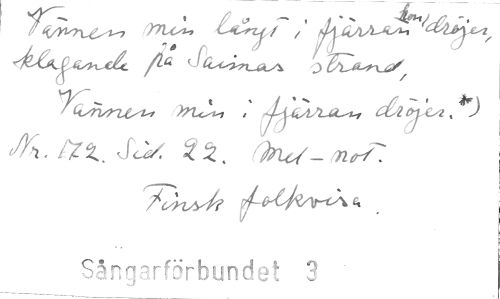 Vännen min långt i fjärran hon dröjer,
klagande på Saimas strand,
Vännen min i fjärran dröjer.*)
Nr. 172. Sid. 22. Mel-not.
Finsk folkvisa.
Sångarförbundet 3